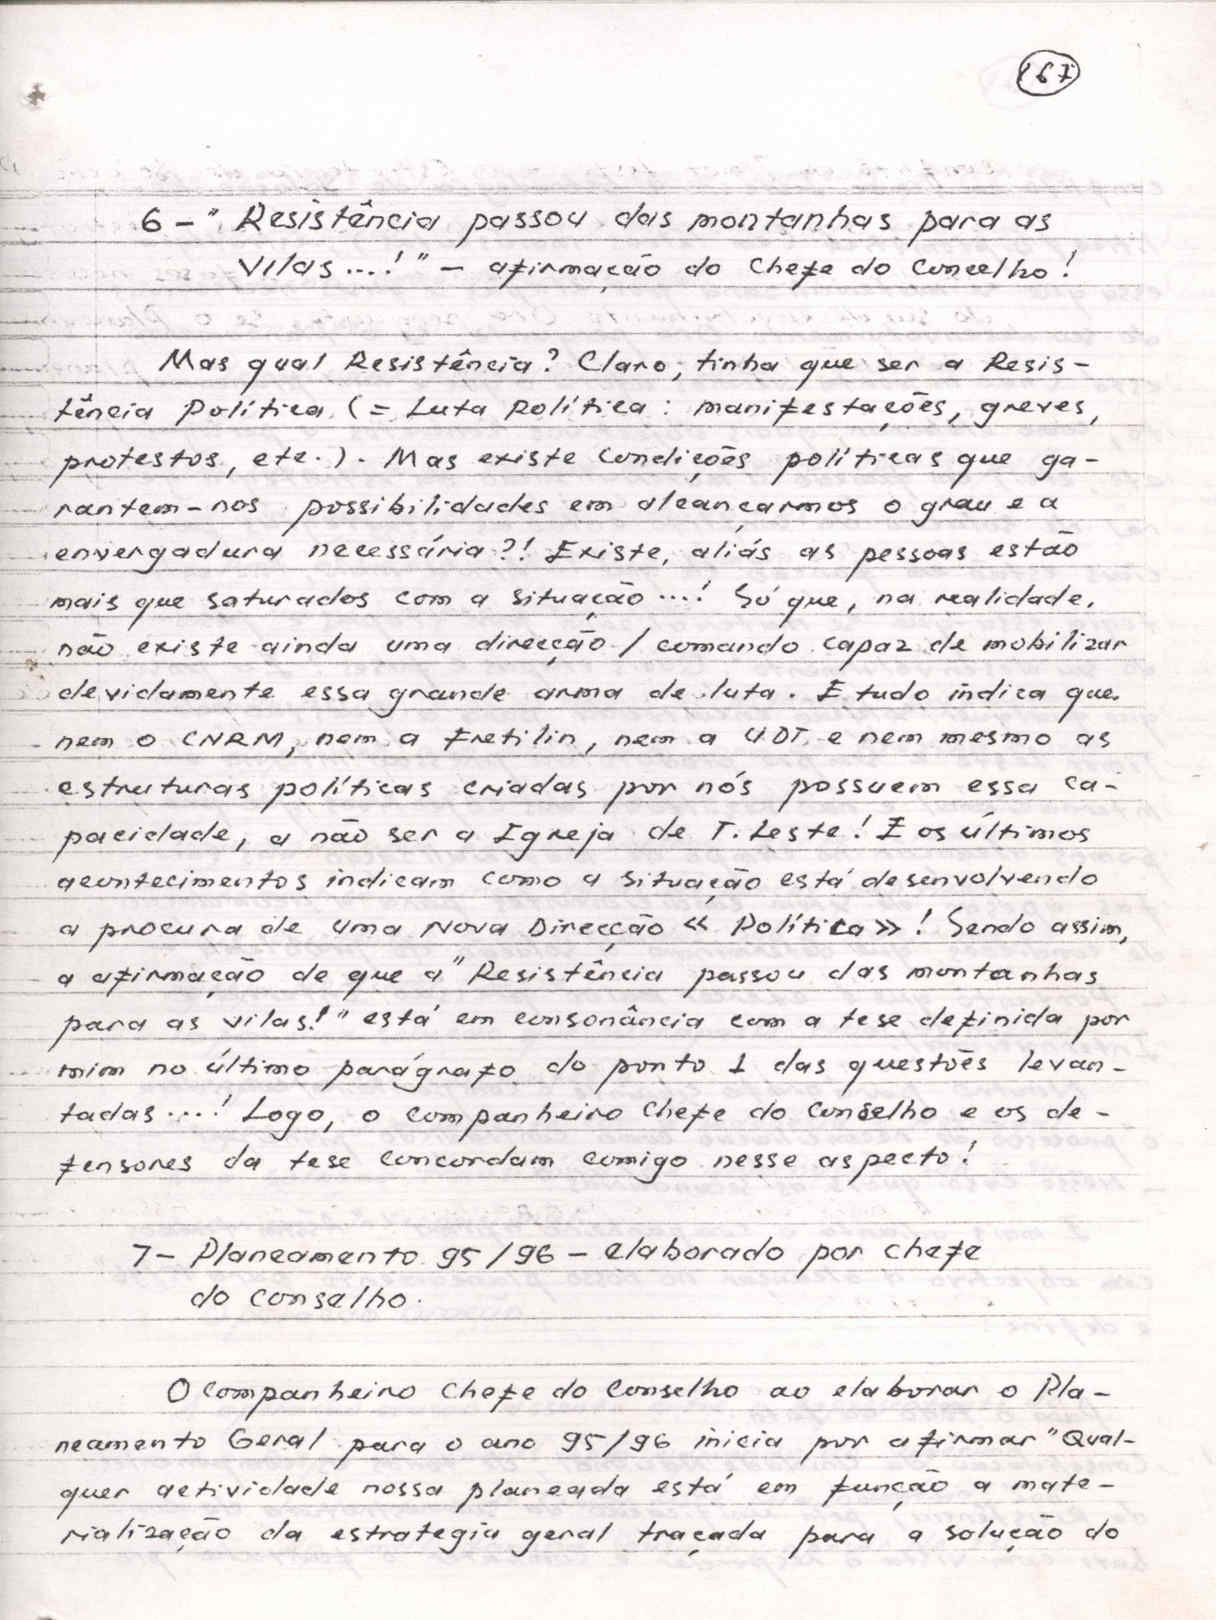 167
6 - " Resistência passou das montanhas para as
vilas...! " - afirmação do Chefe do Concelho!
Mas qual Resistência? Claro, tinha que ser a Resis-
tência Política (= Luta Política: manifestações, greves,
protestos, etc.). Mas existe condições políticas que ga-
rantem-nos possibilidades em alcançarmos o grau e a
envergadura necessária?! Existe, aliás as pessoas estão
mais que saturados com a situação...! Só que, na realidade,
não existe ainda uma direcção / comando capaz de mobilizar
devidamente essa grande arma de luta. E tudo indica que
nem o CNRM, nem a Fretilin, nem a UDT e nem mesmo as
estruturas políticas criadas por nós possuem essa ca-
pacidade, a não ser a Igreja de T. Leste! E os últimos
acontecimentos indicam como a situação está desenvolvendo
a procura de uma Nova Direcção « Política »! Sendo assim,
a afirmação de que a " Resistência passou das montanhas
para as vilas!" está em consonância com a tese definida por
mim no último parágrafo do ponto 1 das questões levan-
tadas...! Logo, o companheiro Chefe do Conselho e os de-
fensores da tese concordam comigo nesse aspecto!
7 - Planeamento 95/96 - elaborado por chefe
do conselho.
O companheiro Chefe do Conselho ao elaborar o Pla-
neamento Geral para o ano 95/96 inicia por afirmar "Qual-
quer actividade nossa planeada está em função a mate-
rialização da estrategia geral traçada para a solução do